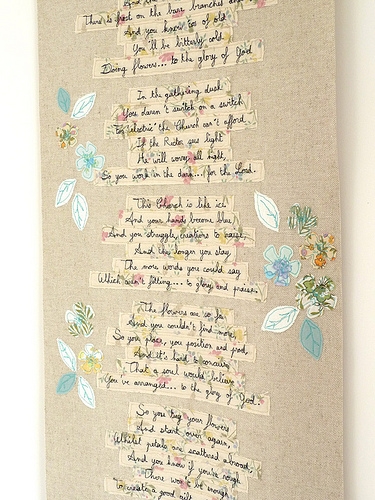 There is frost on the bare branches
And you know too of old
You'll be bitterly cold
Doing flowers... to the glory of God.
In the gathering dusk
You daren't switch on a switch
to 'electric' the Church can't afford,
If the Rector sees light
He will worry all night,
So you work in the dark... for the Lord.
This Church is like ice
And your hands become blue,
And you struggle, creations to raise,
And the longer you stay
The more words you could say
Which aren't fitting... to glory and praise.
The flowers are so few
And you couldn't find more,
So you place, you position and prod,
And it's hard to conceive
That a soul would believe
You've arranged... to the glory of God.
So you tug your flowers
And start over again,
Whilst petals are scattered abroad,
And you know if you're rough
There won't be enough
to create a good